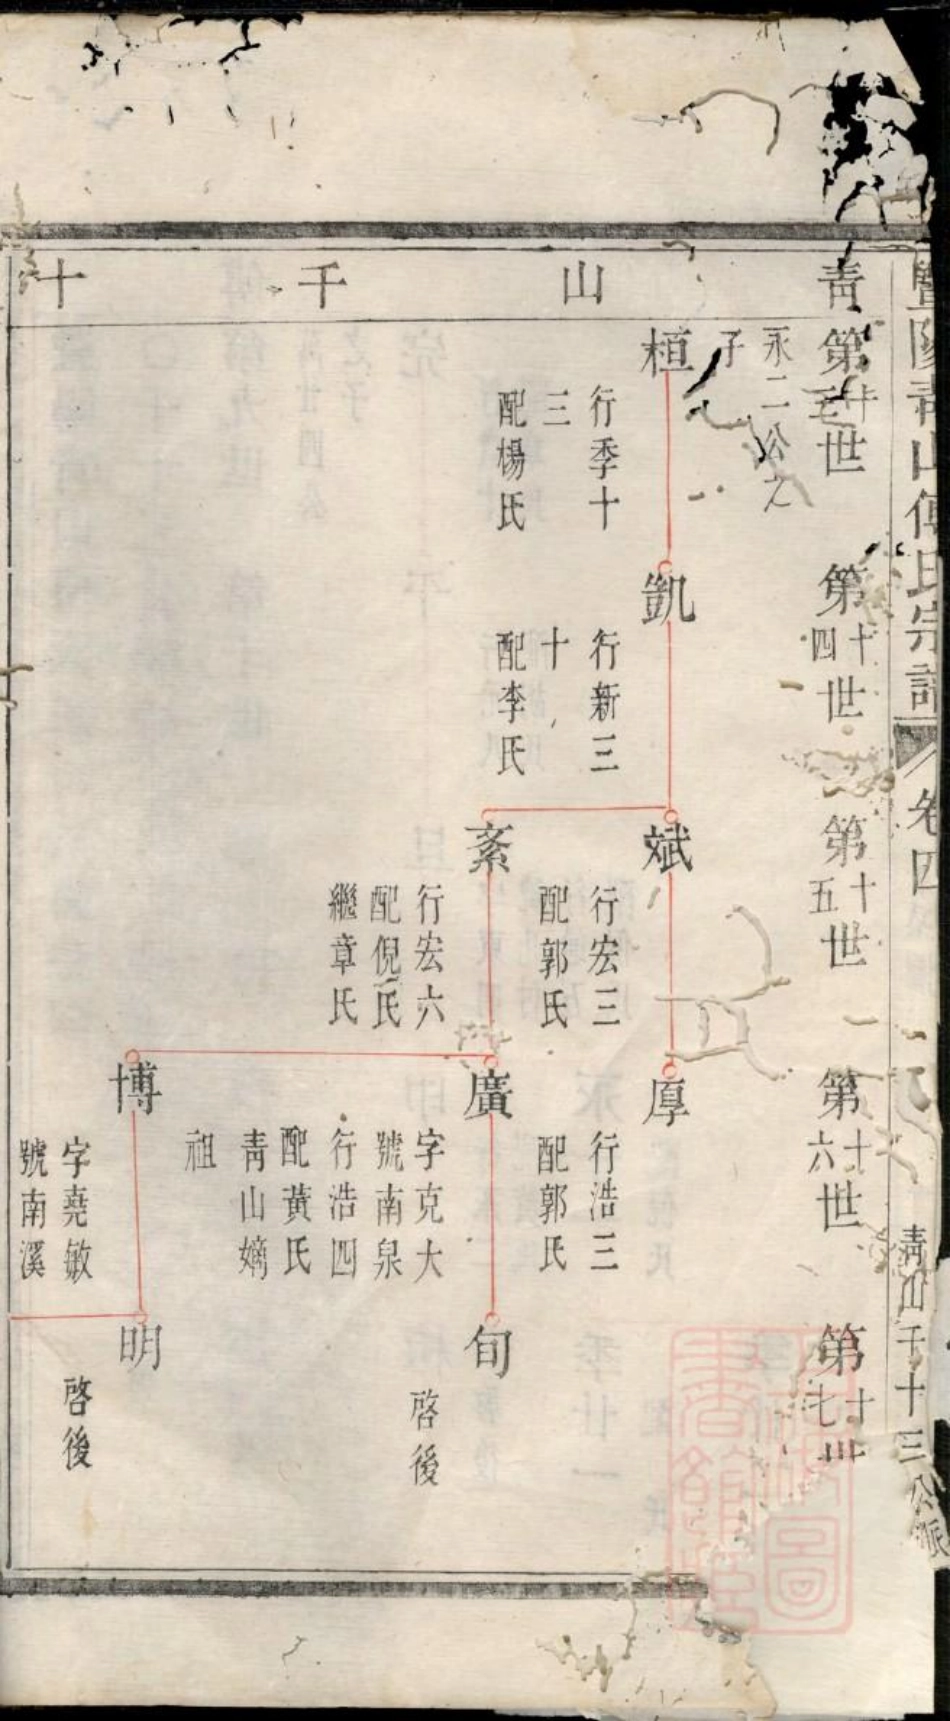 暨陽青山傅氏宗譜 卷四 青山千十三公派
青山千十
第十三世
第十四世
第十五世
第十六世
第十七世
永二公之
子
桓
行季十
三
配楊氏
凱
行新三
十
配李氏
斌
行宏三
配郭氏
厚
行浩三
配郭氏
紊
行宏六
配倪氏
繼章氏
廣
字克大
號南泉
行浩四
配黃氏
青山嫡
祖
旬
啓後
博
字堯敏
號南溪
明
啓後